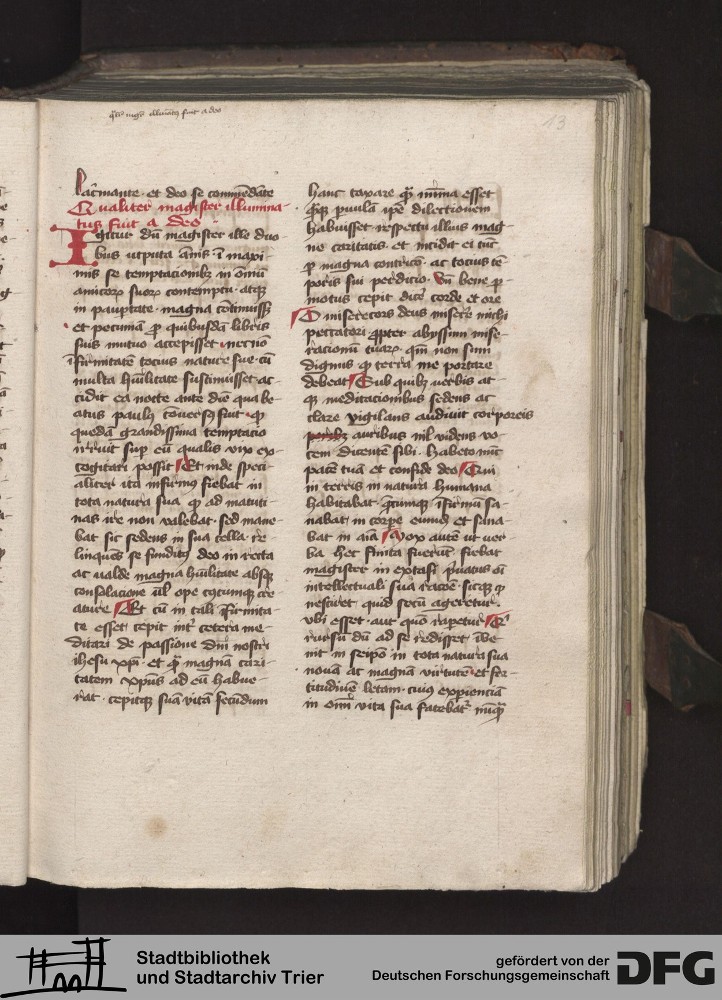 qualiter magister illuminatus fuit a deo
13
lacrimante · et deo se commendante
Qualiter magister illumina-
tus fuit a deo ·
Igitur dum magister ille duo
bus utputa annis · in maxi-
mis se temptacionibus in omnium
amicorum suorum contemptu · atque
in paupertate · magna continuisset
et pecuniam pro quibusdam libris
suis mutuo accepisset · necnon
infirmitatem tocius nature sue cum
multa humilitate sustinuisset · ac-
cidit ea nocte ante diem qua be-
atus paulus conversus fuit · quod
quedam grandissima temptacio
irruit super eum qualis vix ex-
cogitari possit Et inde speci-
aliter ita infirmus fiebat in
tota natura sua quod ad matuti-
nas ire non valebat · sed mane-
bat sic sedens in sua cella · re-
linquens se funditus deo in recta
ac valde magna humilitate absque
consolacione vel ope cuiuscumque cre-
ature Et cum in tali infirmita-
te esset cepit inter cetera me-
ditari de passione domini nostri
ihesu xpi · et quam magnam cari-
tatem xpus ad eum habue-
rat · cepitque suam vitam secundum
hanc taxare quam minima esset
quamque parvulam ipse dilectionem
habuisset respectu illius mag-
ne caritatis · et incidit ei tunc
pro magna contricio · ac tocius te-
poris sui perditio · Unde bene pro-
motus cepit dicere corde et ore
O misericors deus miserere michi
peccatori propter abyssum mise-
racionum tuarum · quoniam non sum
dignus quod terra me portare
debeat Sub quibus verbis at-
que meditacionibus sedens ac
clare vigilans audivit corporeis
auribus nil videns vo-
cem dicentem sibi · habeto nunc
pacem tuam et confide deo Qui
in terris in natura humana
habitabat quemcumque infirmum sa-
nabat in corpore eundem et sana-
bat in anima Mox autem ut ver-
ba hec finita fuerunt fiebat
magister in extasi privatus omni
intellectuali sua racione · sicque quod
nesciret quid secum ageretur ·
ubi esset · aut quo rapetur Et
rursum dum ad se redisset inve-
nit in seipso in tota natura sua
novam ac magnam virtutem · et for-
titudinem letam · cuius experienciam
in omni vita sua fatebatur nunquam
Stadtbibliothek
und Stadtarchiv Trier
gefördert von der
Deutschen Forschungsgemeinschaft
DFG